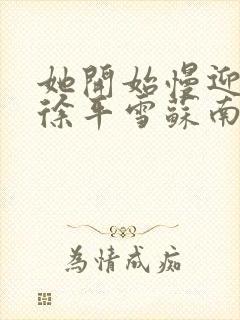 她開始慢迎
徐年雪蘇南
為情成痴